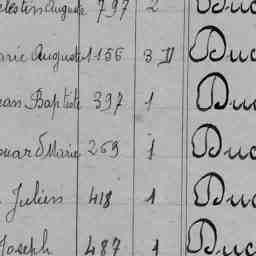 Célestin Auguste 797 2 Duc
Marie Auguste 1156 3 D Duc
Jean Baptiste 397 1 Duc
Édouard Marie 269 1 Duc
Julien 418 1 Duc
Joseph 487 1 Duc